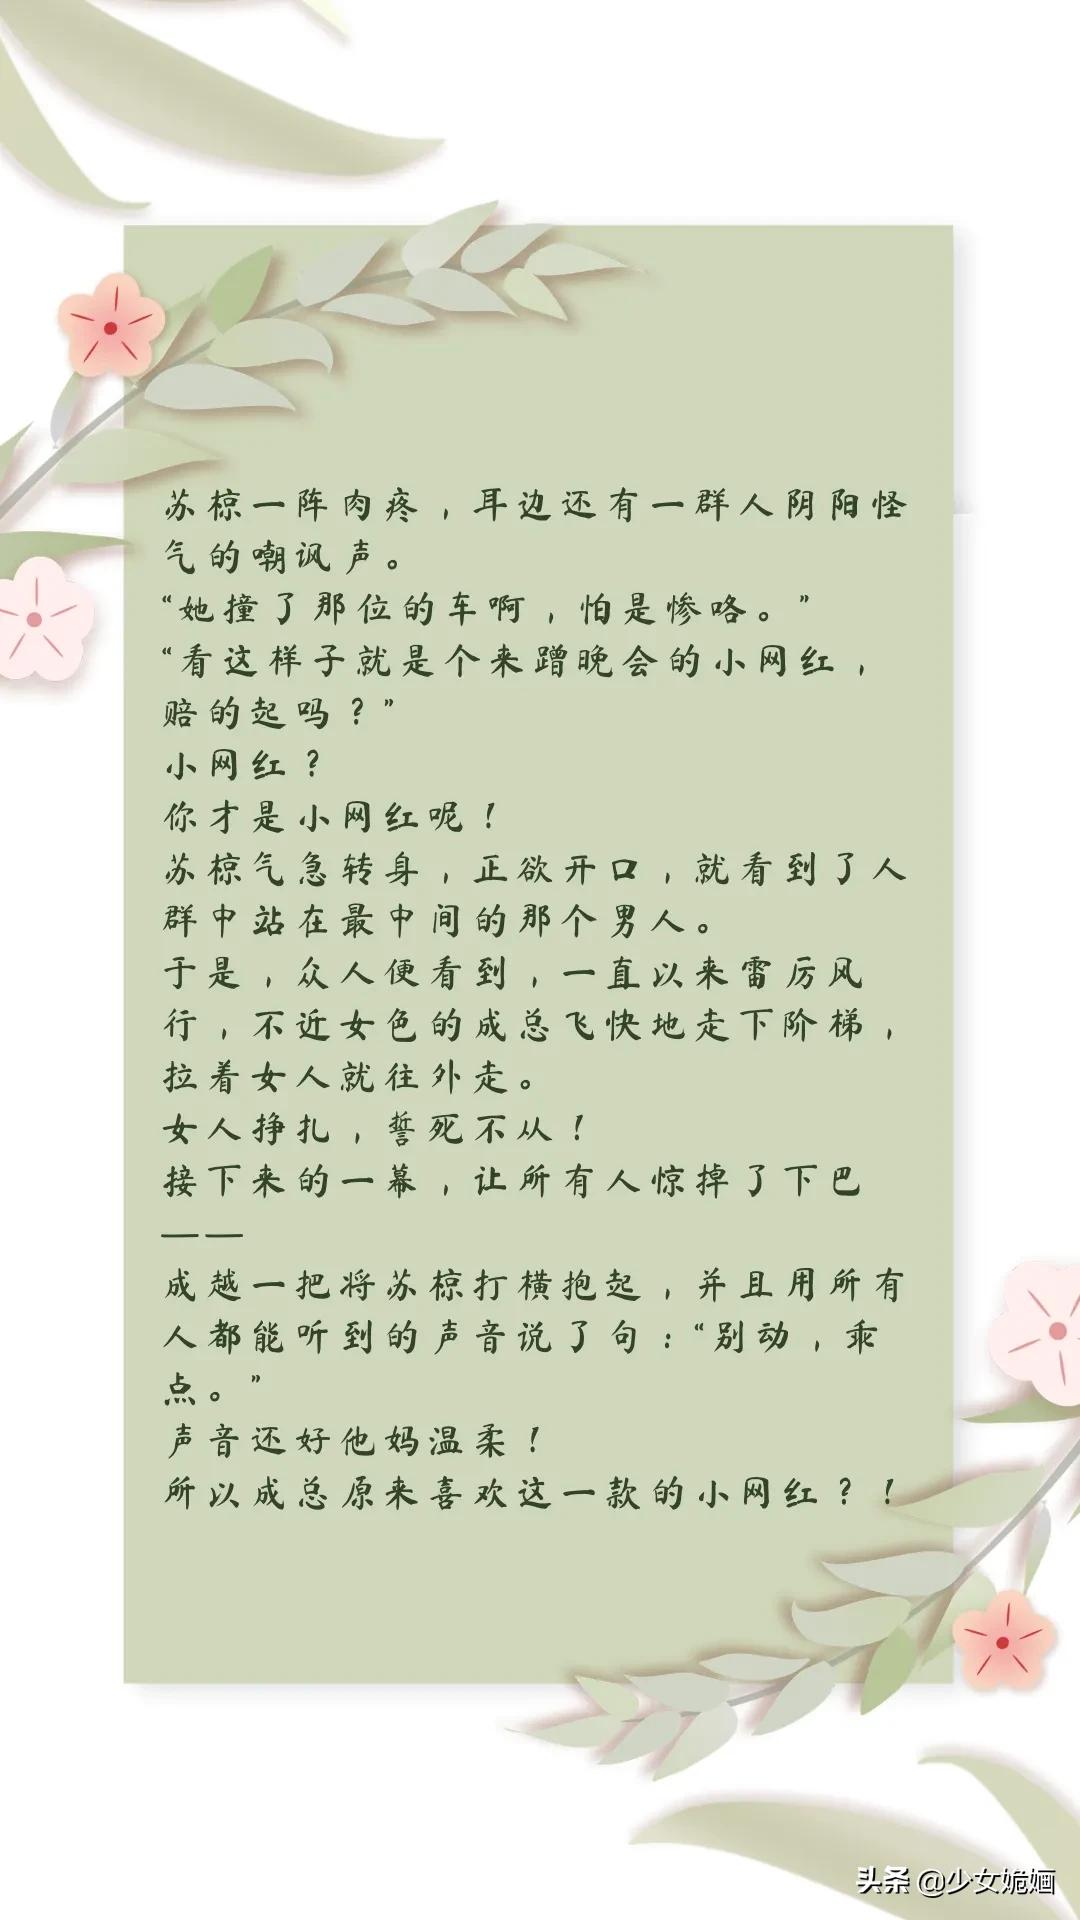 苏椋一阵肉疼，耳边还有一群人阴阳怪
气的嘲讽声。
“她撞了那位的车啊，怕是惨咯。”
“看这样子就是个来蹭晚会的小网红，
赔的起吗？”
小网红？
你才是小网红呢！
苏椋气急转身，正欲开口，就看到了人
群中站在最中间的那个男人。
于是，众人便看到，一直以来雷厉风
行，不近女色的成总飞快地走下阶梯，
拉着女人就往外走。
女人挣扎，誓死不从！
接下来的一幕，让所有人惊掉了下巴
——
成越一把将苏椋打横抱起，并且用所有
人都能听到的声音说了句：“别动，乖
点。”
声音还好他妈温柔！
所以成总原来喜欢这一款的小网红？！
头条 @少女姽婳